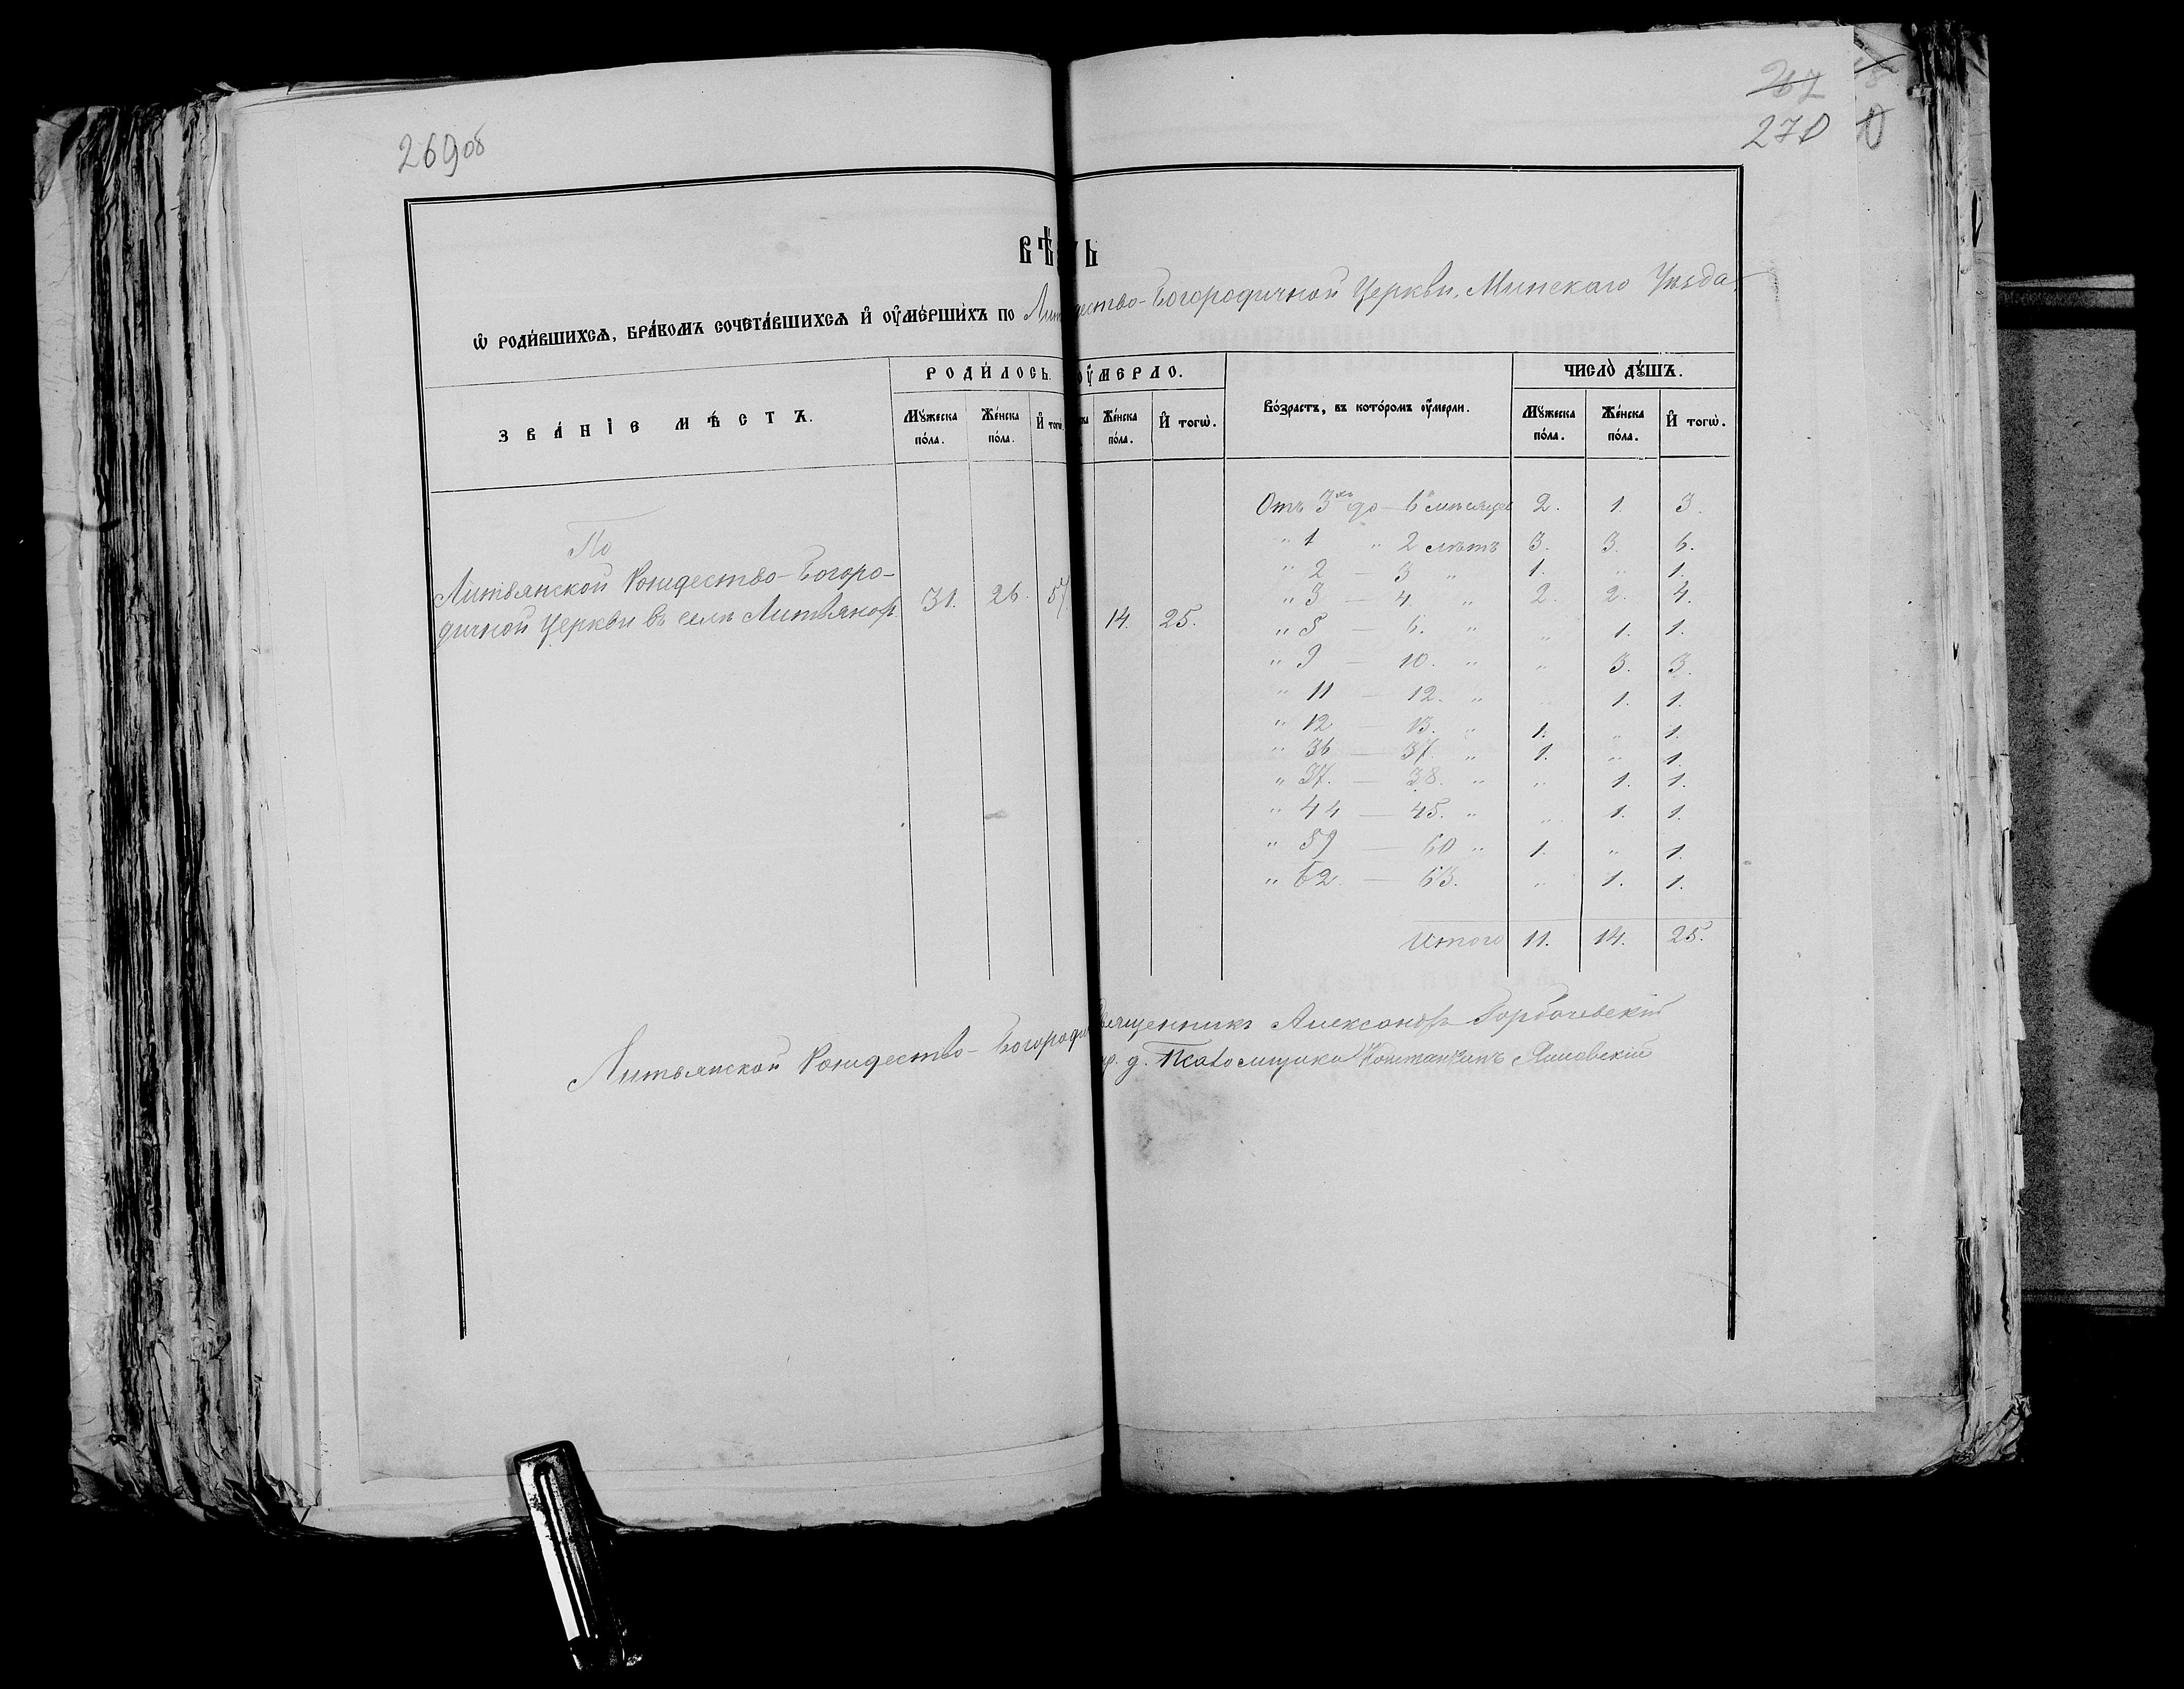 269об
267
270
ВѢ Ь
Ѡ РОДИ́ВШИХСѦ, БРА́КОМЪ СОЧЕТА́ВШИХСѦ И҆ ОУ҆МЕ́РШИХЪ ПО Лит дество-Богородичной Церкви, Минскаго Уѣзда
РОДИ́ЛОСЬ. ОУ҆МЕРЛО. ЧИСЛО̀ ДꙊШЪ.
ЗВА́НІЕ МѢ́СТЪ. Мꙋжеска по́ла. Же́нска по́ла. И҆ тогѡ Же́нска по́ла. И҆ тогѡ. Во́зрастъ, въ кото́ромъ оу҆мерли. Мꙋжеска по́ла. Же́нска по́ла. И҆ тогѡ.
По
Литвянской Рождество-Богоро-
дичной Церкви въ селѣ Литвянах 31. 26. 57 14. 25.
Отъ 3хъ до 6 мѣсяцев 2. 1. 3.
" 1 " 2 лѣтъ 3. 3. 6.
" 2 — 3 " 1. " 1.
" 3 — 4 " 2. 2. 4.
" 5 — 6. " " 1. 1.
" 9 — 10. " " 3. 3.
" 11 — 12. " " 1. 1.
" 12 — 13. " 1. " 1.
" 36 — 37. " 1. " 1.
" 37. — 38. " " 1. 1.
" 44 — 45. " " 1. 1.
" 59 — 60 " 1. " 1.
" 62. — 63. " 1. 1.
Итого 11. 14. 25.
Литвянской Рождество-Богороди вященникъ Александръ Горбачевскій
р. д. Псаломщика Константинъ